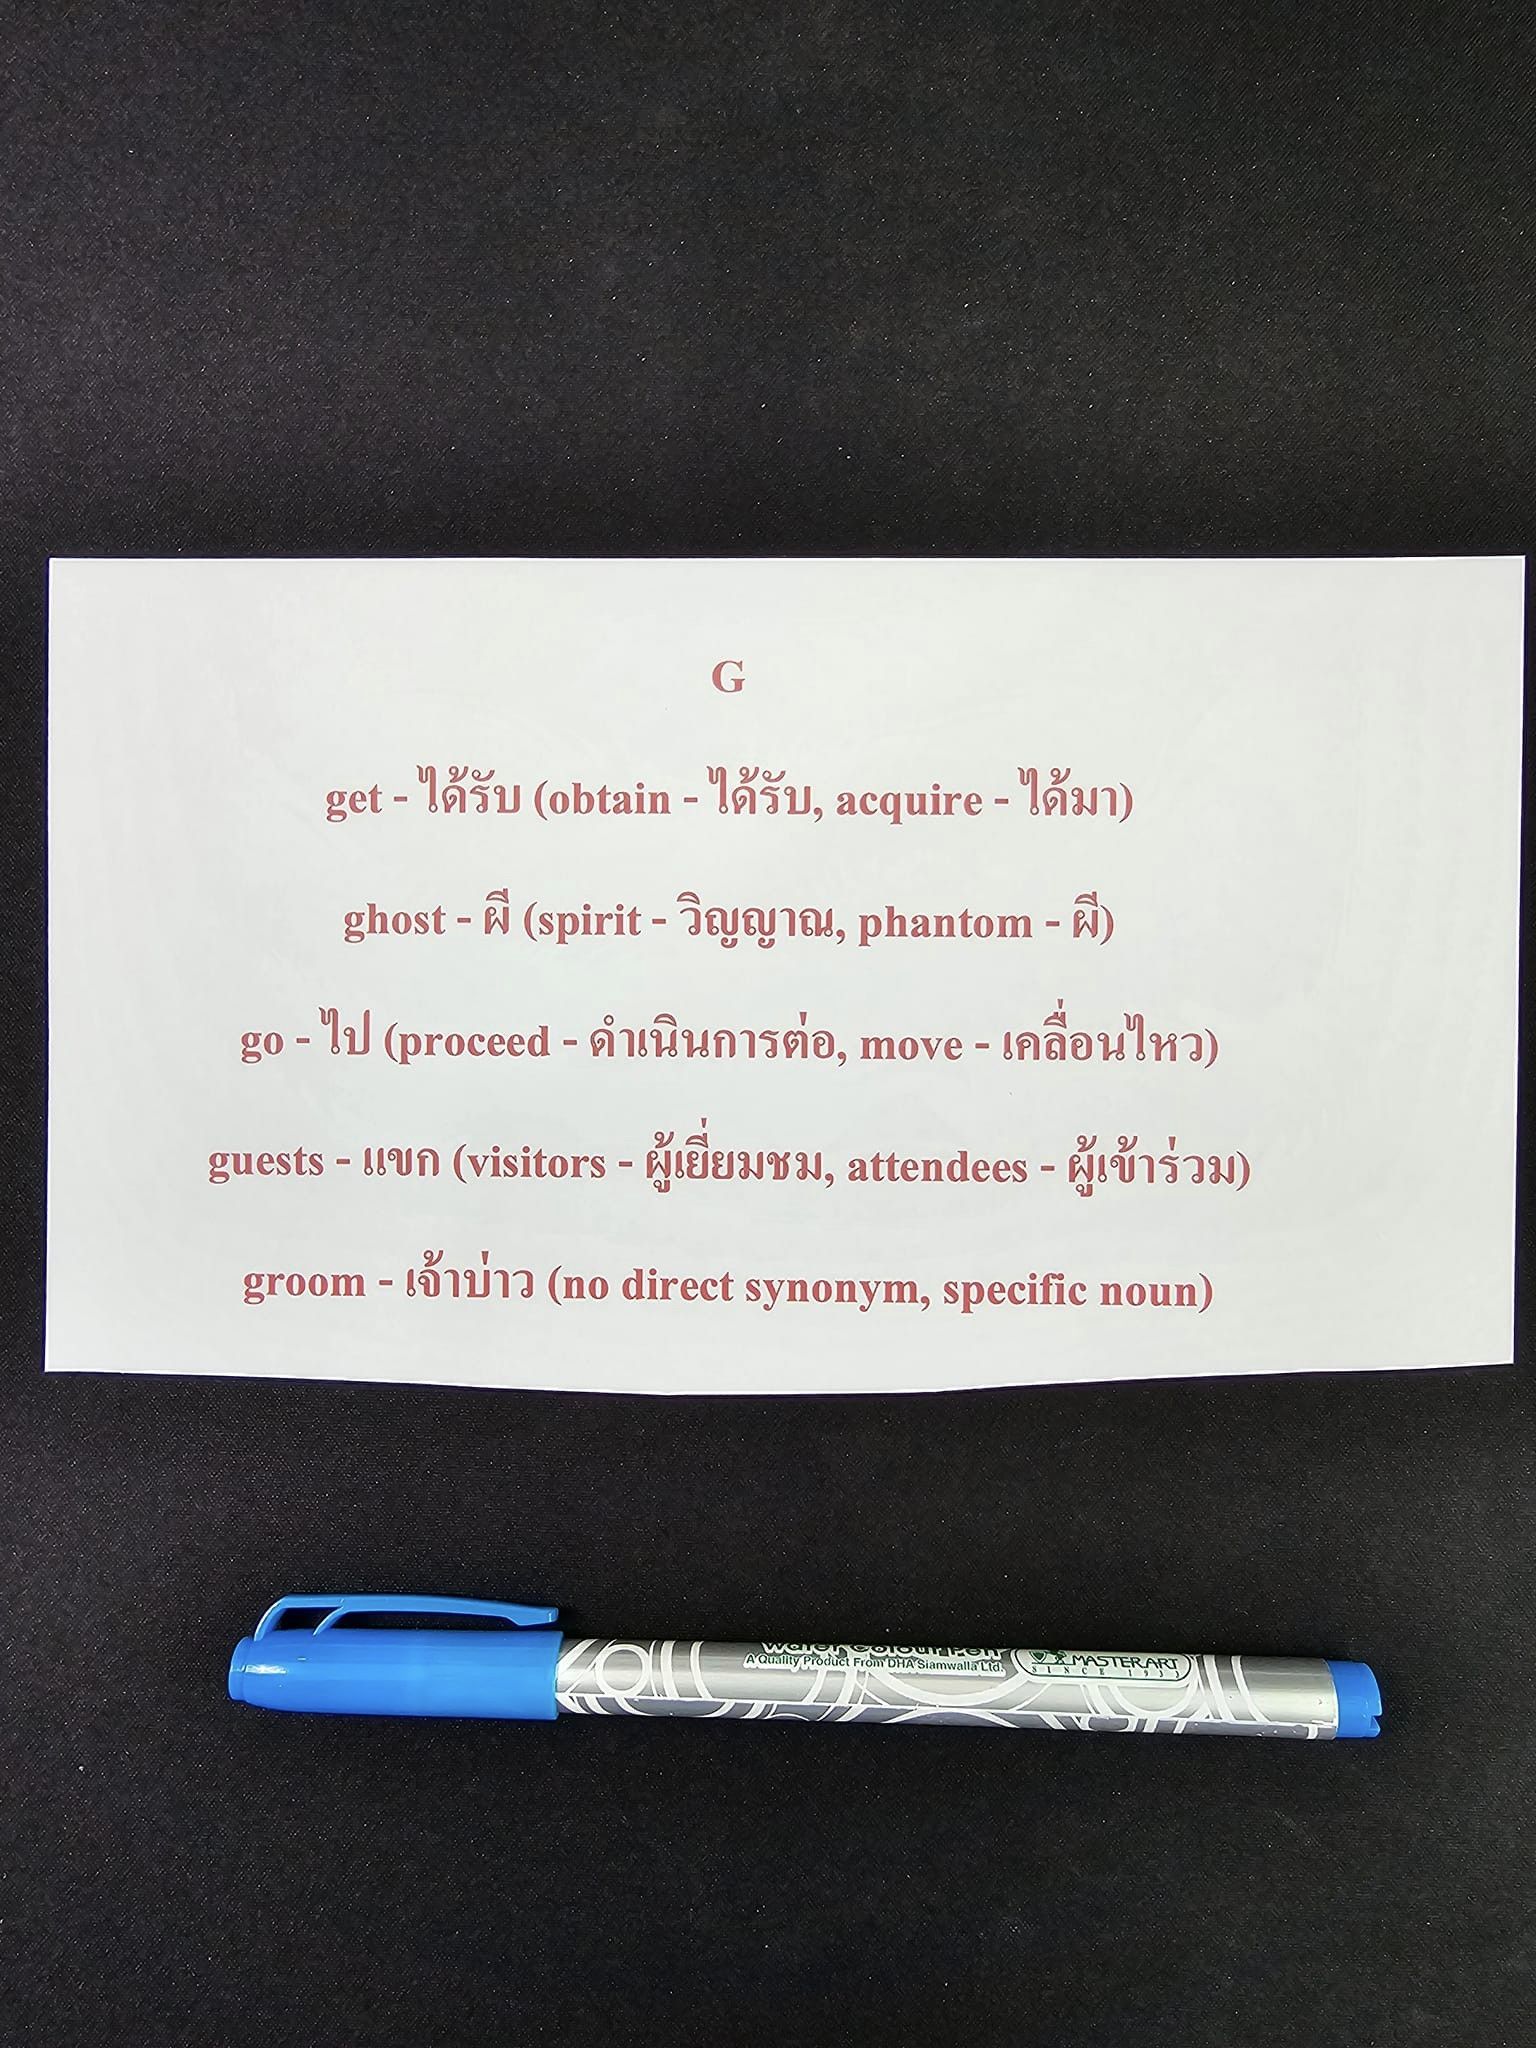 G
get - ได้รับ (obtain - ได้รับ, acquire - ได้มา)
ghost - ผี (spirit - วิญญาณ, phantom - ผี)
go - ไป (proceed - ดำเนินการต่อ, move - เคลื่อนไหว)
guests - แขก (visitors - ผู้เยี่ยมชม, attendees - ผู้เข้าร่วม)
groom - เจ้าบ่าว (no direct synonym, specific noun)
Water Colour Pen
A Quality Product From DHA Siamwalla Ltd.
MASTERART
SINCE 1933